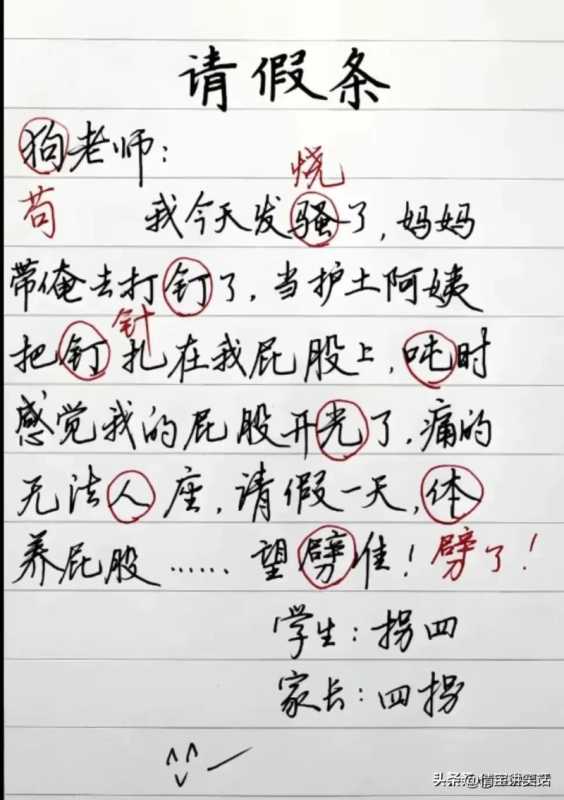 请假条
狗老师：
烧
苟 我今天发骚了，妈妈
带俺去打钉了，当护土阿姨
针
把钉扎在我屁股上，吨时
感觉我的屁股开光了，痛的
无法人座，请假一天，体
养屁股……望劈准！劈了！
学生：拐四
家长：四拐
头条@倩宝讲笑话